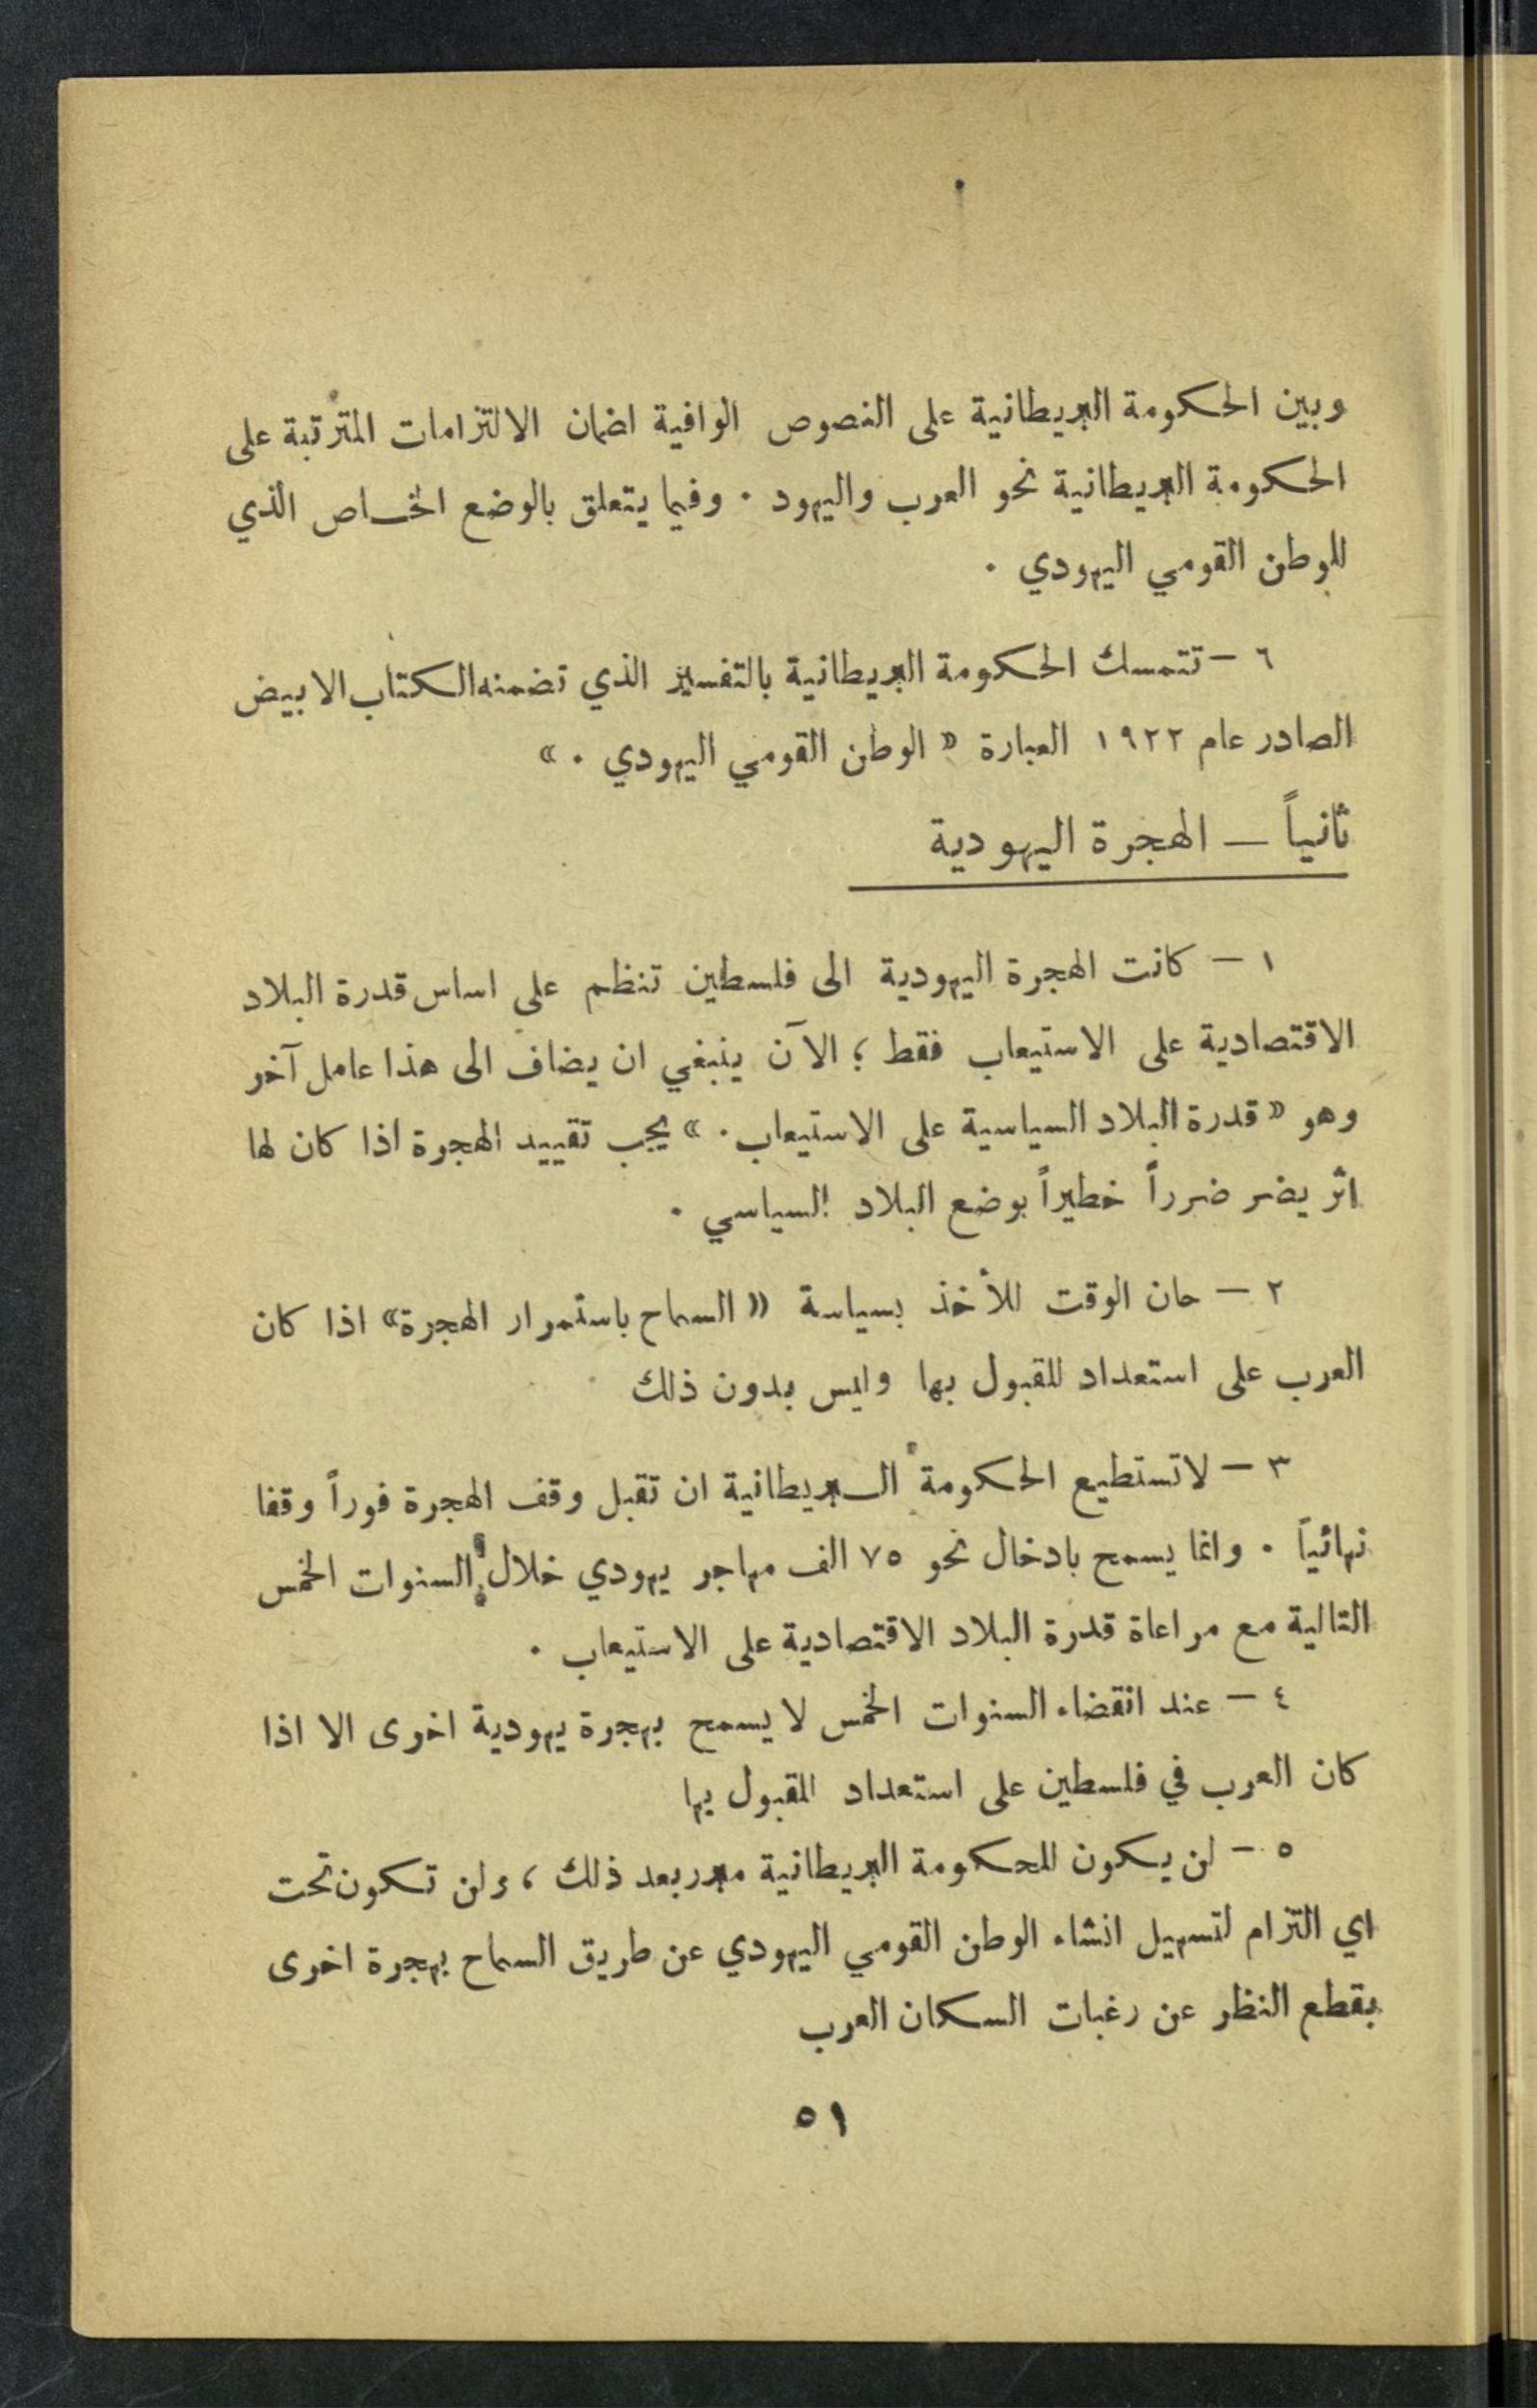 وبين الحكومة البريطانية على النصوص الوافية لضمان الالتزامات المترتبة على
الحكومة البريطانية نحو العرب واليهود . وفيما يتعلق بالوضع الخاص الذي
للوطن القومي اليهودي .
٦ – تتمسك الحكومة البريطانية بالتفسير الذي تضمنه الكتاب الابيض
الصادر عام ١٩٢٢ لعبارة « الوطن القومي اليهودي . »
ثانياً – الهجرة اليهودية
١ – كانت الهجرة اليهودية الى فلسطين تنظم على اساس قدرة البلاد
الاقتصادية على الاستيعاب فقط ؛ الآن ينبغي ان يضاف الى هذا عامل آخر
وهو « قدرة البلاد السياسية على الاستيعاب . » يجب تقييد الهجرة اذا كان لها
اثر يضر ضرراً خطيراً بوضع البلاد السياسي .
٢ – حان الوقت للأخذ بسياسة « السماح باستمرار الهجرة » اذا كان
العرب على استعداد للقبول بها وليس بدون ذلك
٣ – لا تستطيع الحكومة البريطانية ان تقبل وقف الهجرة فوراً وقفا
نهائياً . وانما يسمح بادخال نحو ٧٥ الف مهاجر يهودي خلال السنوات الخمس
التالية مع مراعاة قدرة البلاد الاقتصادية على الاستيعاب .
٤ – عند انقضاء السنوات الخمس لا يسمح بهجرة يهودية اخرى الا اذا
كان العرب في فلسطين على استعداد للقبول بها
٥ – لن يكون للحكومة البريطانية مبرر بعد ذلك ، ولن تكون تحت
اي التزام لتسهيل انشاء الوطن القومي اليهودي عن طريق السماح بهجرة اخرى
بقطع النظر عن رغبات السكان العرب
٥١